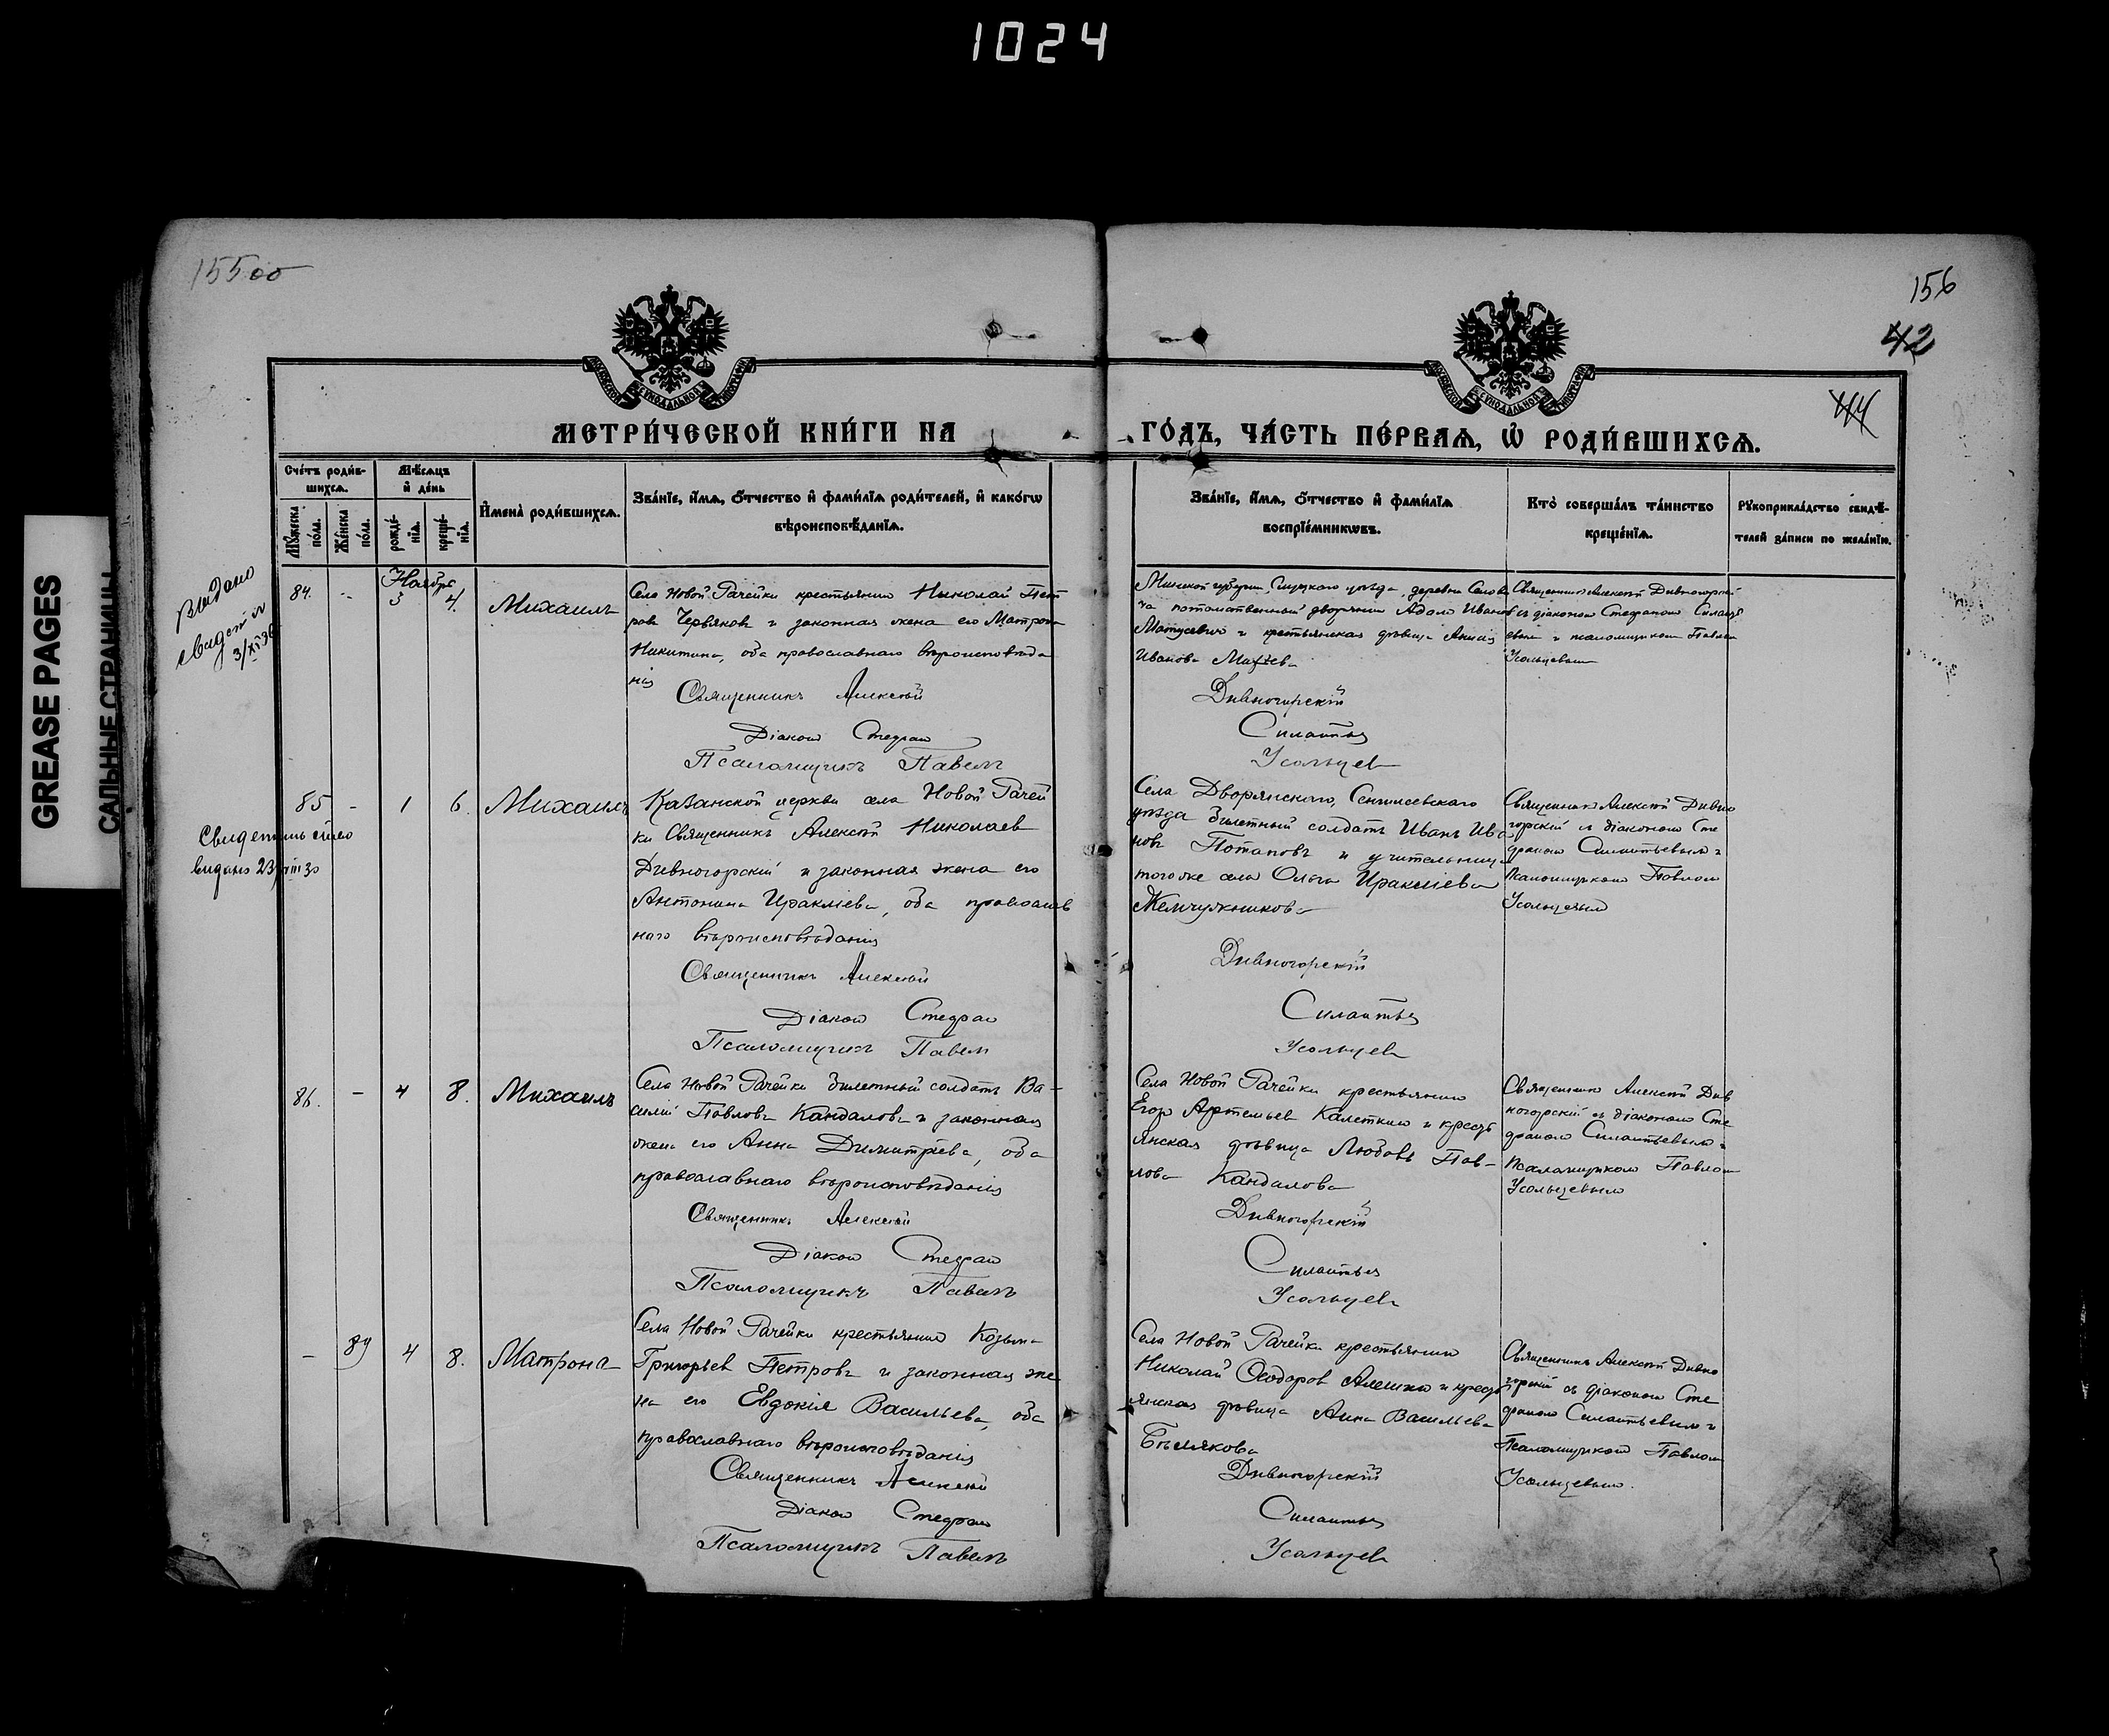 1024
GREASE PAGES
САЛЬНЫЕ СТРАНИЦЫ
155 об
156
42
44
МЕТРИ́ЧЕСКОЙ КНИ́ГИ НА
ГО́ДЪ, ЧА́СТЬ ПЕ́РВАѦ, Ѡ҆ РОДИ́ВШИХСѦ.
Сче́тъ роди́в-
шихсѧ.
Мѣ́сѧцъ
и҆ де́нь
Мꙋ́жеска по́ла.
Же́нска по́ла.
рожде́-
нїѧ.
креще́-
нїѧ.
И҆мена̀ роди́вшихсѧ.
Зва́нїе, и҆́мѧ, ѻ҆́тчество и҆ фами́лїѧ роди́телей, и҆ како́гѡ
вѣроисповѣ́данїѧ.
Зва́нїе, и҆́мѧ, ѻ҆́тчество и҆ фами́лїѧ
воспрїе́мникѡвъ.
Кто̀ соверша́лъ та́инство
креще́нїѧ.
Рꙋкоприкла́дство свидѣ́-
телей за́писи по жела́нїю.
Выдано
свидет.
3/XI 36
84.
Ноябрь
3
4.
Михаилъ
Села Новой Рачейки крестьянинъ Николай Пет
ровъ Червяковъ и законная жена его Матрона
Никитина, оба православнаго вѣроисповѣда
нія
Священникъ Алексѣй
Діаконъ Стефан
Псаломщикъ Павелъ
Минской губерніи, Слуцкаго уѣзда, деревни
потомственный дворянинъ Адамъ Ивановъ
Матусевичъ и крестьянская дѣвица Анисія
Иванова
Дивногорскій
Силантьев
Усольцев
Священникъ Алексѣй Дивногорскій
съ діакономъ Стефаномъ Силанть
евымъ и псаломщикомъ Павломъ
Усольцевымъ
85
-
1
6.
Михаилъ
Свидетельство
выдано 23/VIII 30
Казанской церкви села Новой Рачей
ки Священникъ Алексѣй Николаев
Дивногорскій и законная жена его
Антонина Ираклиева, оба православ
наго вѣроисповѣданія
Священникъ Алексѣй
Діаконъ Стефан
Псаломщикъ Павел
Села Дворянскаго, Сенгилеевскаго
уѣзда билетный солдатъ Иванъ Ива
новъ Потаповъ и учительница
того же села Ольга Ираклиева
Жемчужникова
Дивногорскій
Силантьев
Усольцев
Священникъ Алексѣй Дивно
горскій съ діакономъ Сте
фаномъ Силантьевымъ и
псаломщикомъ Павломъ
Усольцевымъ
86.
-
4
8.
Михаилъ
Села Новой Рачейки билетный солдатъ Ва-
силій Павловъ Кандаловъ и законная
жена его Анна Димитріева, оба
православнаго вѣроисповѣданія
Священникъ Алексѣй
Діаконъ Стефан
Псаломщикъ Павелъ
Села Новой Рачейки крестьянинъ
Егоръ Артемьев Калеткинъ и кресть
янская дѣвица Любовь Пав-
лова Кандалова
Дивногорскій
Силантьев
Усольцев
Священникъ Алексѣй Див
ногорскій съ діакономъ Сте
фаномъ Силантьевымъ и
псаломщикомъ Павломъ
Усольцевымъ
-
89
4
8.
Матрона
Села Новой Рачейки крестьянинъ Козьма
Григорьев Петровъ и законная же
на его Евдокія Васильева, оба
православнаго вѣроисповѣданія
Священникъ Алексѣй
Діаконъ Стефан
Псаломщикъ Павелъ
Села Новой Рачейки крестьянинъ
Николай Ѳеодоров Алешинъ и кресть
янская дѣвица Анна Васильева
Бѣлякова
Дивногорскій
Силантьев
Усольцев
Священникъ Алексѣй Дивно
горскій съ діакономъ Сте
фаномъ Силантьевымъ и
Псаломщикомъ Павломъ
Усольцевымъ.